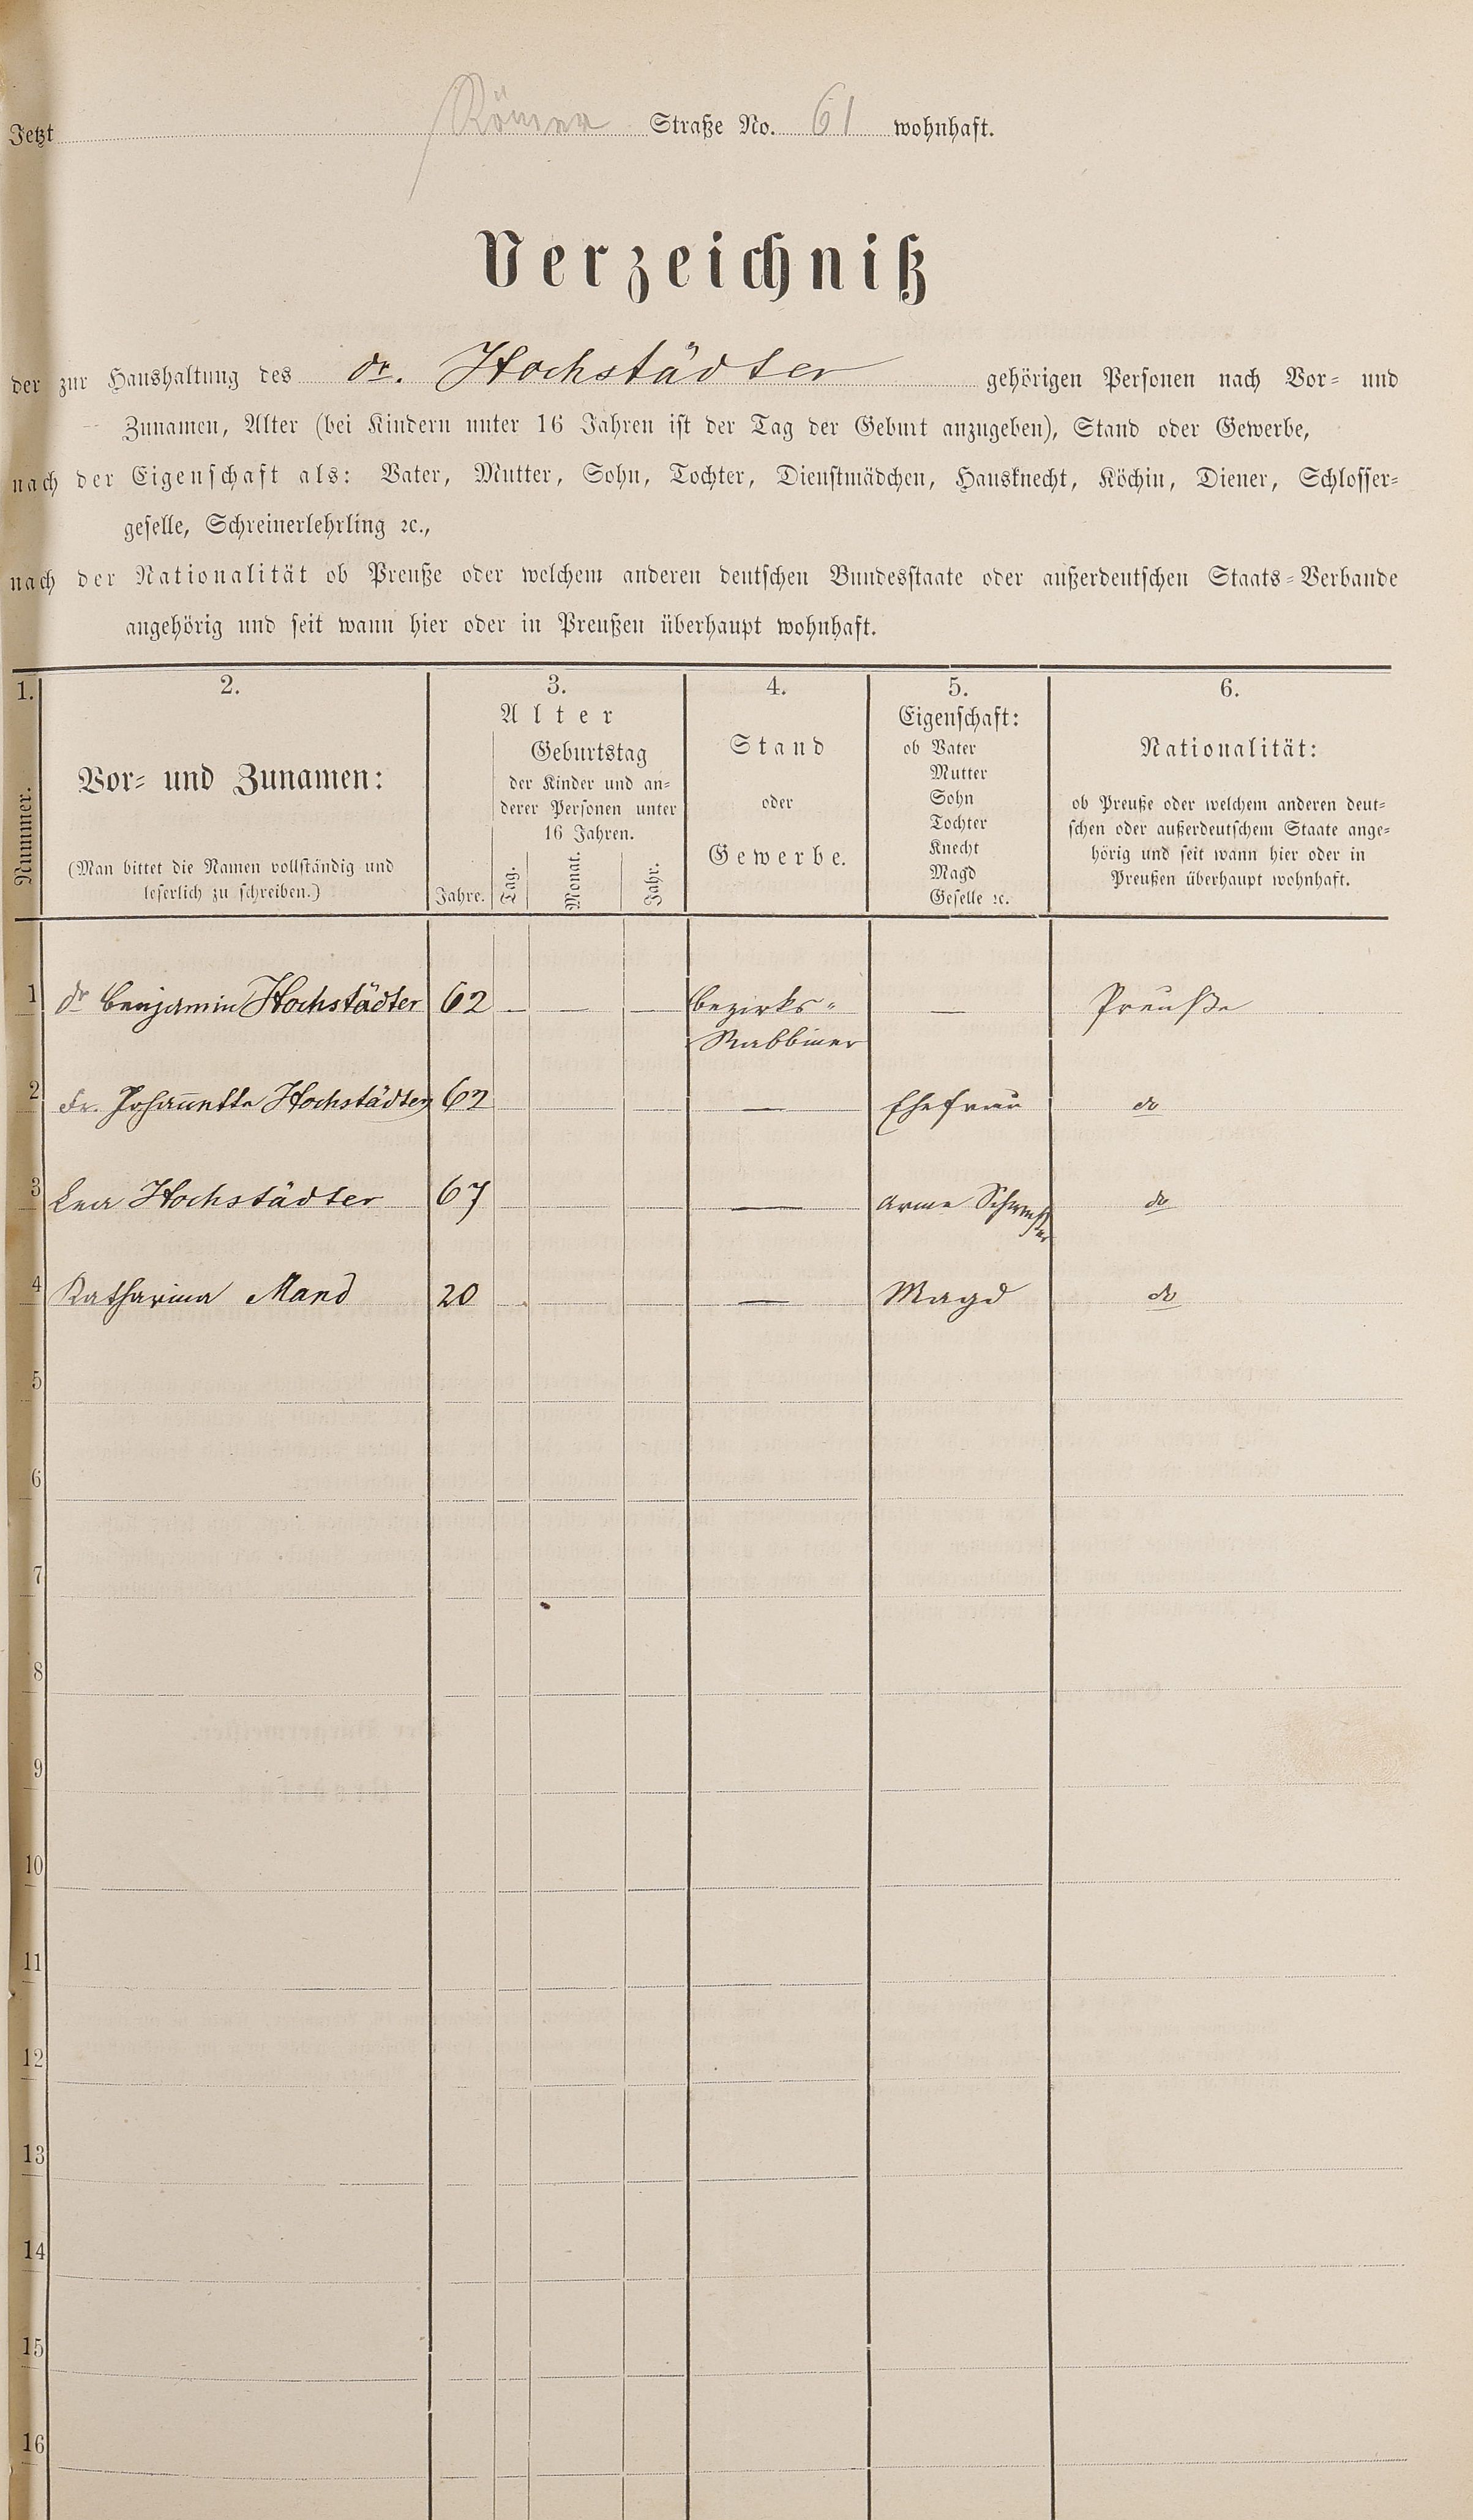 Jetzt Römer Straße No. 61 wohnhaft.
Verzeichniß
der zur Haushaltung des Dr. Hochstädter gehörigen Personen nach Vor- und
Zunamen, Alter (bei Kindern unter 16 Jahren ist der Tag der Geburt anzugeben), Stand oder Gewerbe,
nach der Eigenschaft als: Vater, Mutter, Sohn, Tochter, Dienstmädchen, Hausknecht, Köchin, Diener, Schlosser-
geselle, Schreinerlehrling ꝛc.,
nach der Nationalität ob Preuße oder welchem anderen deutschen Bundesstaate oder außerdeutschen Staats-Verbande
angehörig und seit wann hier oder in Preußen überhaupt wohnhaft.
1. 2. 3. 4. 5. 6.
Nummer.
Vor- und Zunamen:
(Man bittet die Namen vollständig und
leserlich zu schreiben.)
Alter
Jahre.
Geburtstag
der Kinder und an-
derer Personen unter
16 Jahren.
Tag. Monat. Jahr.
Stand
oder
Gewerbe.
Eigenschaft:
ob Vater
Mutter
Sohn
Tochter
Knecht
Magd
Geselle ꝛc.
Nationalität:
ob Preuße oder welchem anderen deut-
schen oder außerdeutschem Staate ange-
hörig und seit wann hier oder in
Preußen überhaupt wohnhaft.
1 Dr Benjamin Hochstädter 62 — — — Bezirks- — Preuße
Rabbiner
2 Fr. Johannetta Hochstädter 62 — Ehefrau do
3 Lea Hochstädter 67 — arme Schwester do
4 Katharina Mand 20 — Magd do
5
6
7
8
9
10
11
12
13
14
15
16